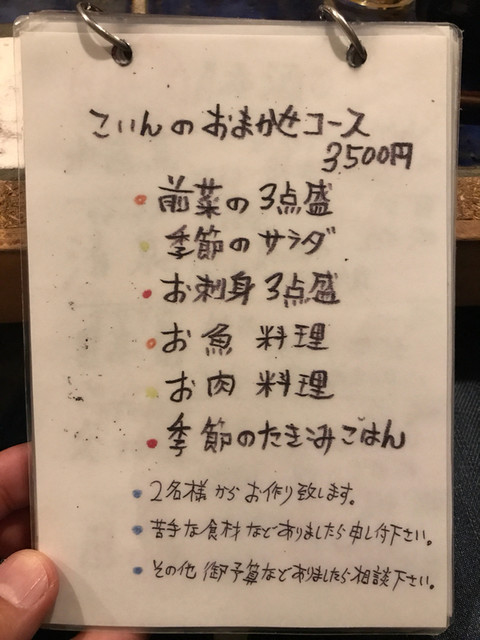 こいんのおまかせコース
3500円
前菜の3点盛
季節のサラダ
お刺身3点盛
お魚料理
お肉料理
季節のたきこみごはん
2名様からお作り致します。
苦手な食材などありましたら申し付下さい。
その他御予算などありましたら相談下さい。